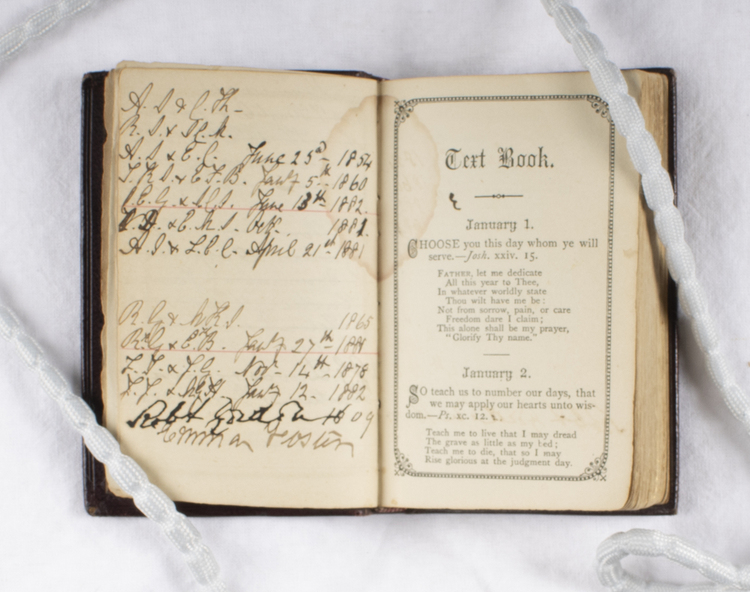 A. S & C. Th-
R. S. &
A. S & E. C. June 25th 1854
T. R. S. & E. F. B. Jany 5th 1860
June 13th 1882
& E. M. S. Oct. 1881
A. S. & L. E. C. April 21st 1881
R. G & 1865
R. G & E. R. Jany 27th 1881
Novr 14th 1878
Jany 12. 1882
Robt 09
Text Book.
January 1.
CHOOSE you this day whom ye will
serve.—Josh. xxiv. 15.
FATHER, let me dedicate
All this year to Thee,
In whatever worldly state
Thou wilt have me be:
Not from sorrow, pain, or care
Freedom dare I claim;
This alone shall be my prayer,
"Glorify Thy name."
January 2.
SO teach us to number our days, that
we may apply our hearts unto wis-
dom.—Ps. xc. 12.
Teach me to live that I may dread
The grave as little as my bed;
Teach me to die, that so I may
Rise glorious at the judgment day.